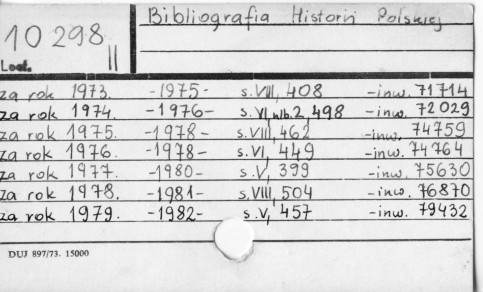 Bibliografia Historii Polskiej
10 298 II
Lok.
za rok 1973. -1975- s. VIII, 408 -inw. 71714
za rok 1974. -1976- s. VI, nlb. 2, 498 -inw. 72029
za rok 1975. -1978- s. VIII, 462 -inw. 74759
za rok 1976. -1978- s. VI, 449 -inw. 74764
za rok 1977. -1980- s. V, 399 -inw. 75630
za rok 1978. -1981- s. VIII, 504 -inw. 76870
za rok 1979. -1982- s. V, 457 -inw. 79432
DUJ 897/73. 15000